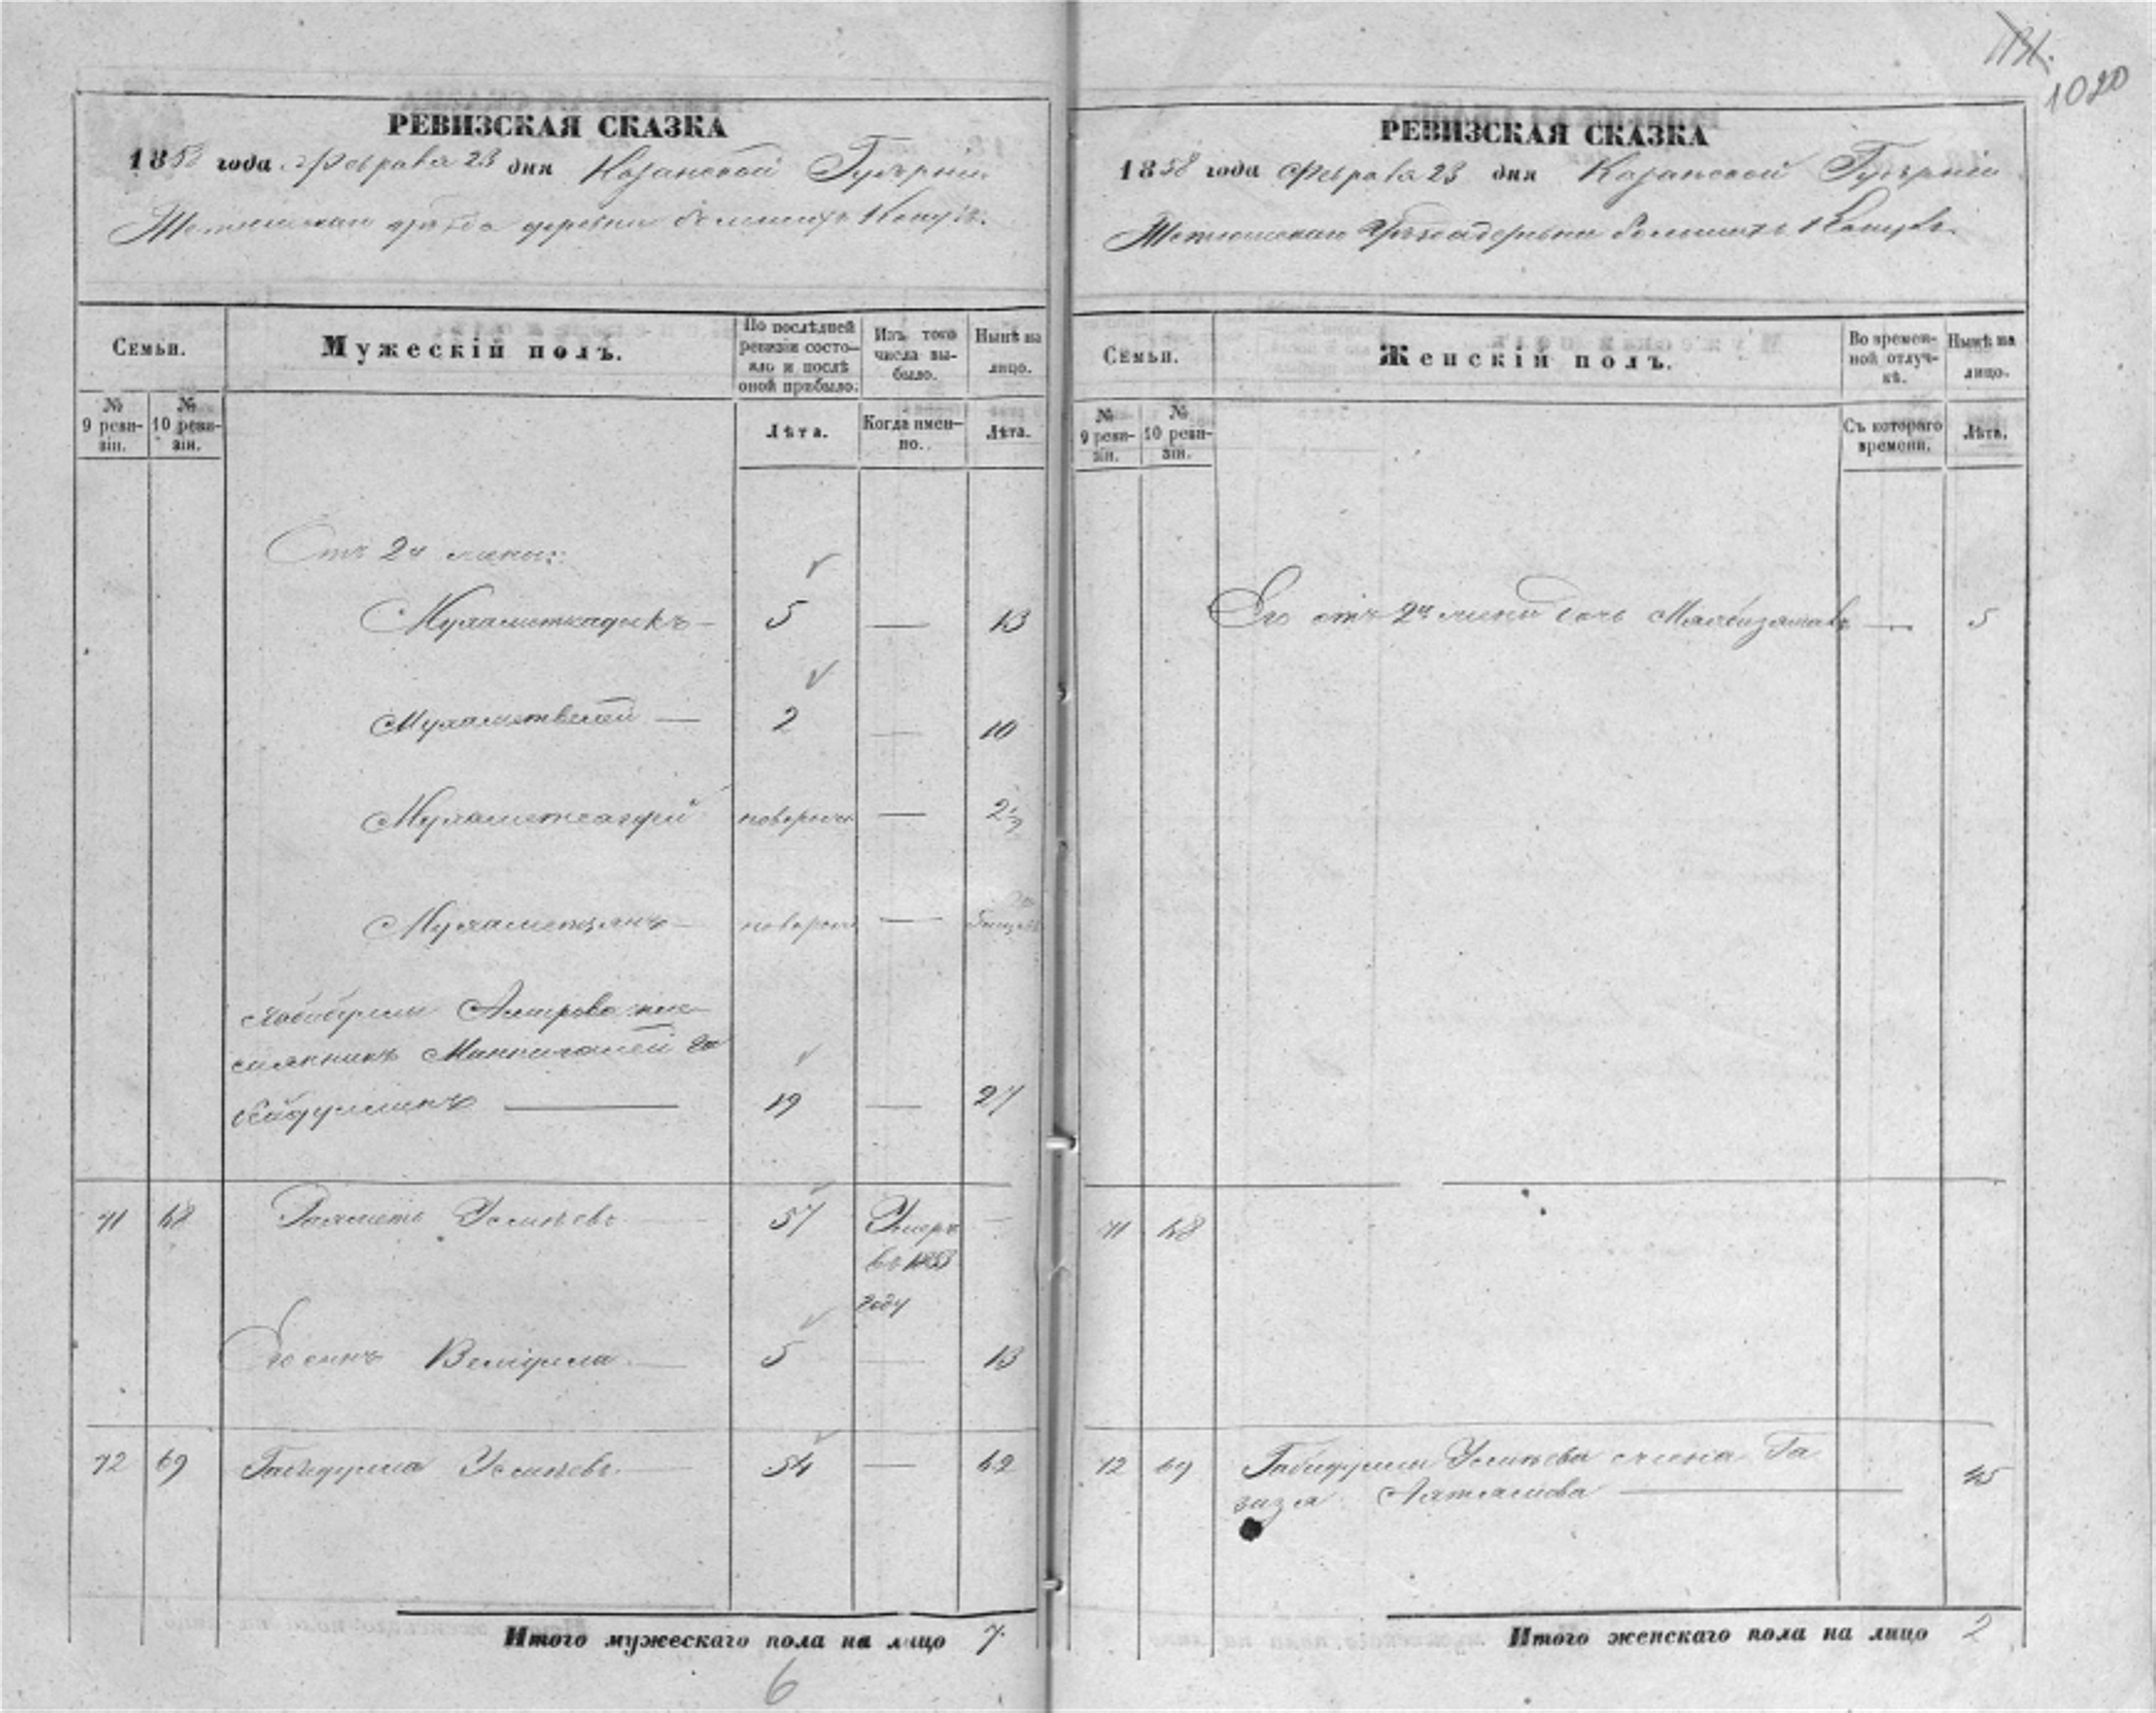 1020
РЕВИЗСКАЯ СКАЗКА
1858 года Февраля 23 дня Казанской Губернiи
Тетюшскаго уѣзда деревни большихъ
Семьи.
Мужескій полъ.
По послѣдней ревизіи состояло и послѣ оной прибыло.
Изъ того числа выбыло.
Нынѣ на лицо.
№ 9 ревизіи.
№ 10 ревизіи.
Лѣта.
Когда именно.
Лѣта.
Отъ 2й жены:
Мухаметсадыкъ — 5 — 13
Мухаметвелей — 2 — 10
Мухамет новорож — 2½
Мухаметзянъ — новорож —
Хабибуллы Амирова пле
мянникъ Минигалей Га
бейдуллинъ — 19 — 27
71 68 Рахметъ Усмѣевъ — 57 Умеръ —
въ 1853
году
Его сынъ Велидулла — 5 — 13
72 69 Габидулла Усмѣевъ — 54 — 62
Итого мужескаго пола на лицо 7.
6
РЕВИЗСКАЯ СКАЗКА
1858 года Февраля 23 дня Казанской Губернiи
Тетюшскаго Уѣзда деревни большихъ
Семьи.
Женскій полъ.
Во временной отлучкѣ.
Нынѣ на лицо.
№ 9 ревизіи.
№ 10 ревизіи.
Съ котораго времени.
Лѣта.
Его отъ 2й жены дочь — 5
71 68
72 69 Габидуллы Усмѣева жена Га
зиза — 45
Итого женскаго пола на лицо 2